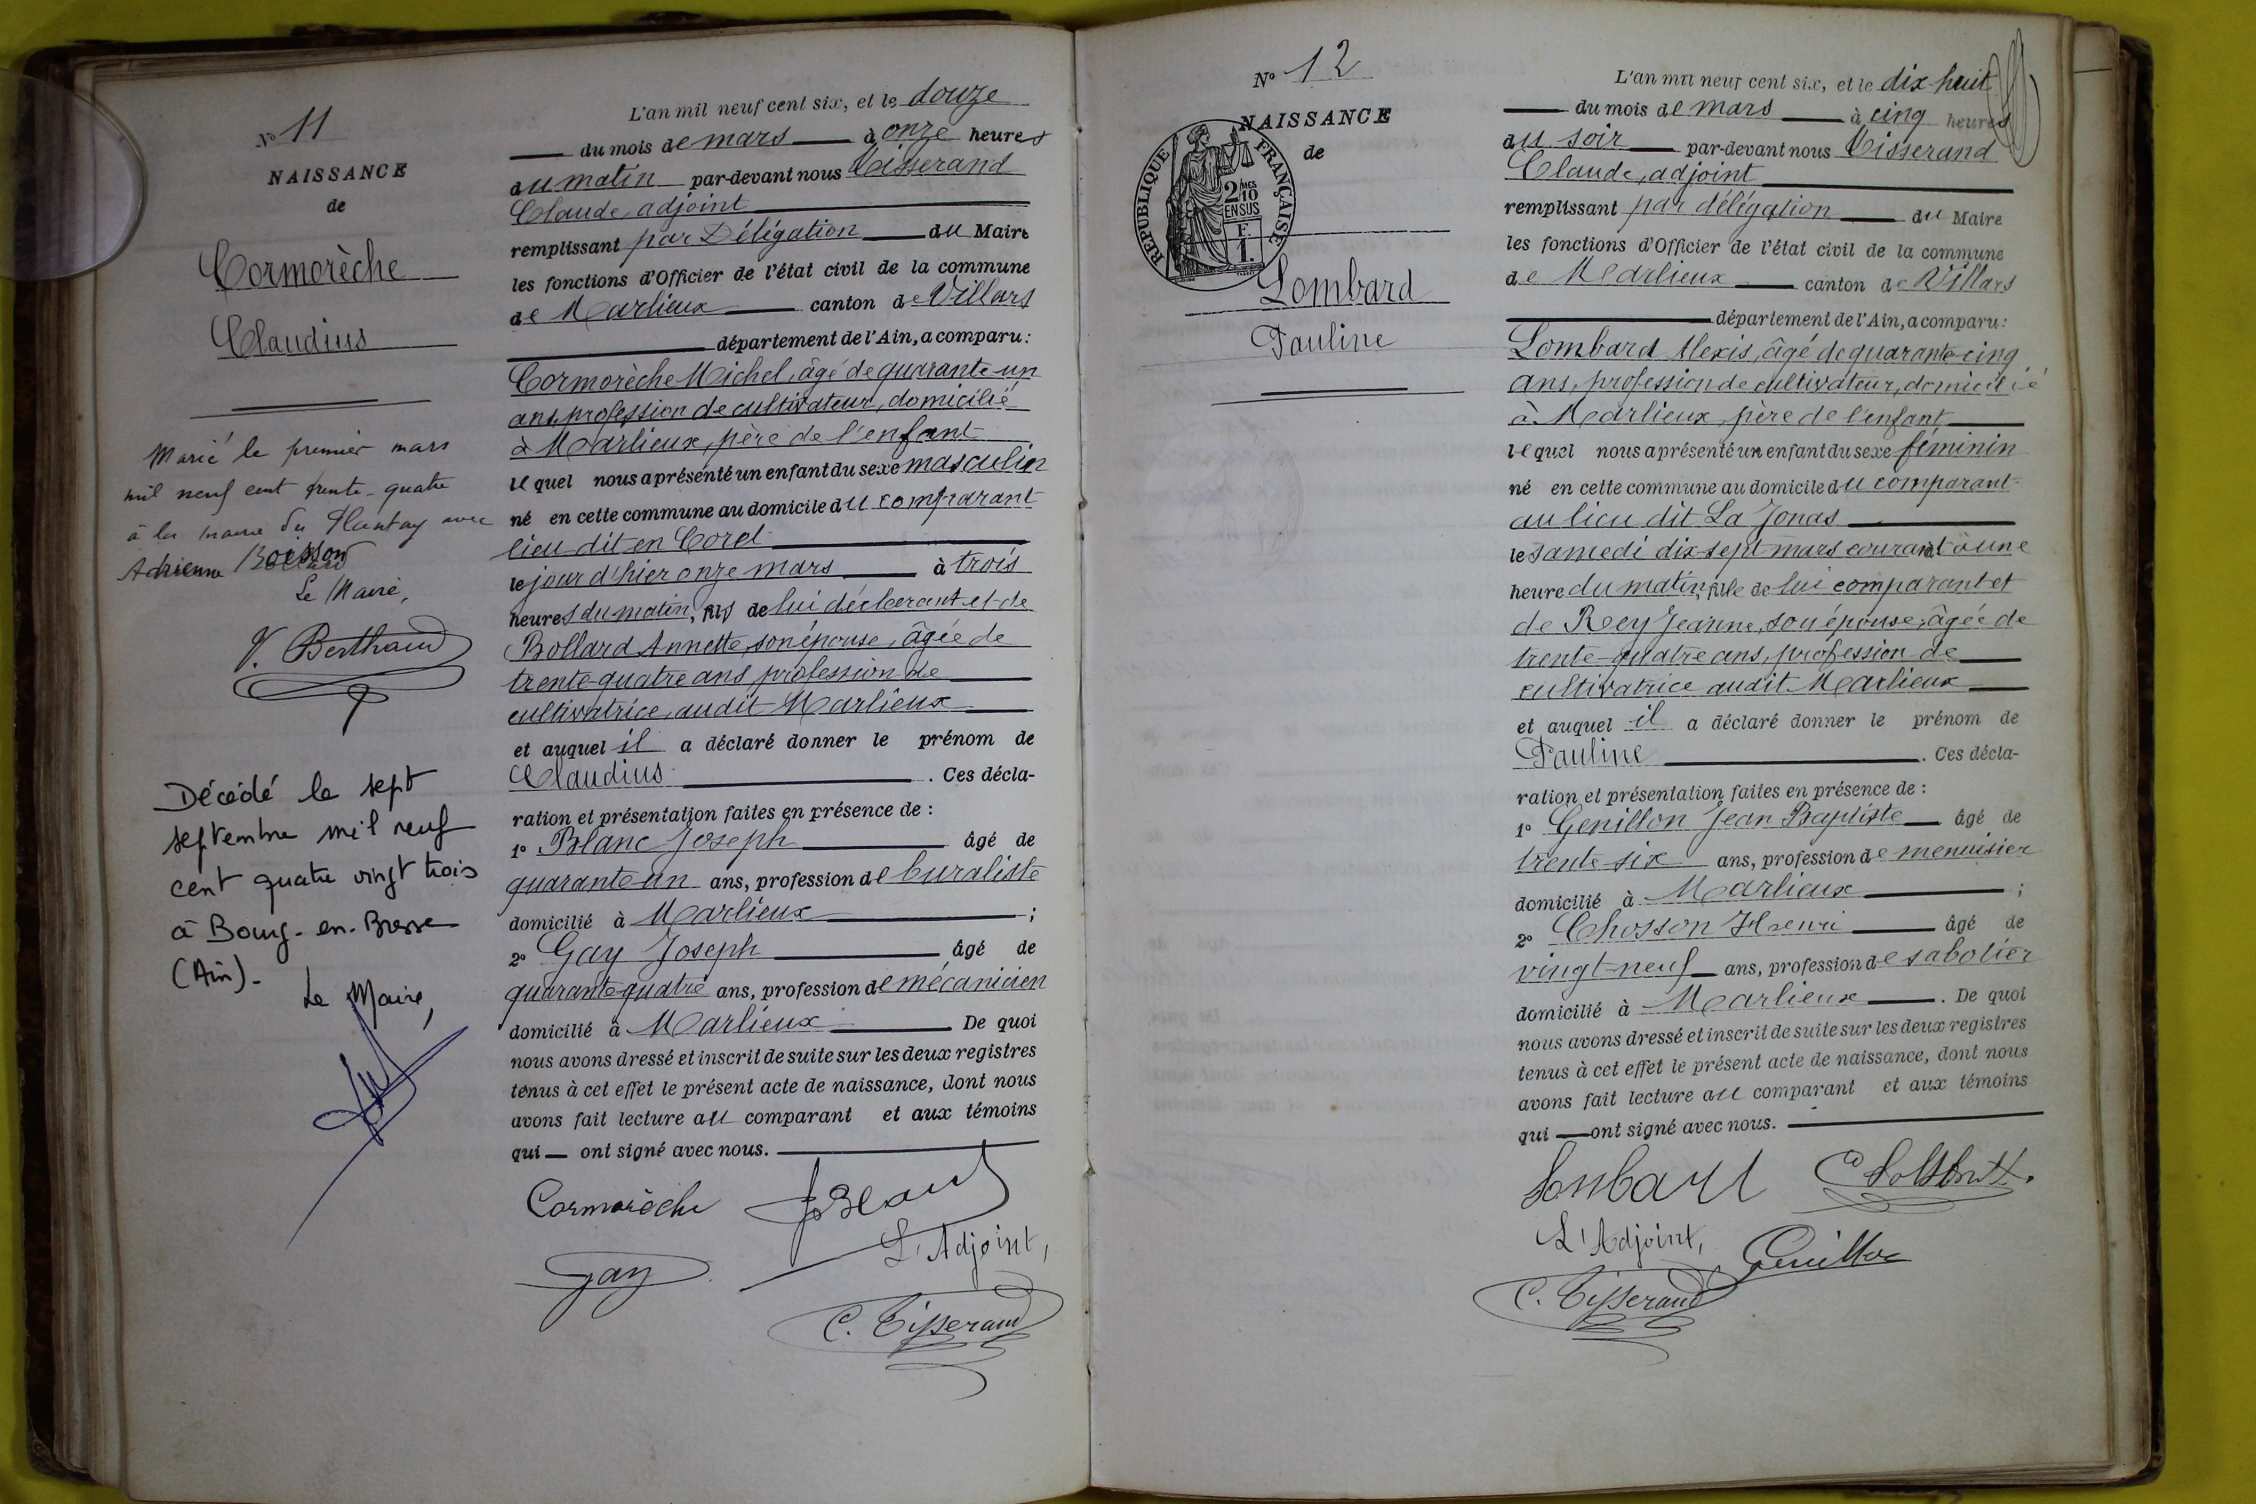 N° 11
NAISSANCE
de
Cormorèche
Claudius
Marié le premier mars
mil neuf cent trente-quatre
à la mairie du Plantay avec
Adrienne
Le Maire,
V. Berthaud
Décédé le sept
septembre mil neuf
cent quatre vingt trois
à Bourg-en-Bresse
(Ain).
Le Maire,
L'an mil neuf cent six, et le douze
du mois de mars à onze heures
du matin par-devant nous Tisserand
Claude, adjoint
remplissant par Délégation du Maire
les fonctions d'Officier de l'état civil de la commune
de Marlieux canton de Villars
département de l'Ain, a comparu:
Cormorèche Michel, âgé de quarante-un
ans, profession de cultivateur, domicilié
à Marlieux, père de l'enfant
lequel nous a présenté un enfant du sexe masculin
né en cette commune au domicile du comparant
lieu dit en Corel
le jour d'hier onze mars à trois
heures du matin, fils de lui déclarant et de
Bollard Annette, son épouse, âgée de
trente-quatre ans, profession de
cultivatrice, audit Marlieux
et auquel il a déclaré donner le prénom de
Claudius. Ces décla-
ration et présentation faites en présence de :
1° Blanc Joseph âgé de
quarante-un ans, profession de buraliste
domicilié à Marlieux ;
2° Gay Joseph âgé de
quarante-quatre ans, profession de mécanicien
domicilié à Marlieux De quoi
nous avons dressé et inscrit de suite sur les deux registres
tenus à cet effet le présent acte de naissance, dont nous
avons fait lecture au comparant et aux témoins
qui — ont signé avec nous.
Cormorèche J. Blanc
L'Adjoint,
Gay
C. Tisserand
N° 12
NAISSANCE
de
RÉPUBLIQUE FRANÇAISE
2/10 MES
EN SUS
F.
1.
Lombard
Pauline
L'an mil neuf cent six, et le dix-huit
du mois de mars à cinq heures
du soir par-devant nous Tisserand
Claude, adjoint
remplissant par délégation du Maire
les fonctions d'Officier de l'état civil de la commune
de Marlieux canton de Villars
département de l'Ain, a comparu:
Lombard Alexis, âgé de quarante-cinq
ans, profession de cultivateur, domicilié
à Marlieux, père de l'enfant
lequel nous a présenté un enfant du sexe féminin
né en cette commune au domicile du comparant
au lieu dit La Jonas
le samedi dix-sept mars courant à une
heure du matin, fille de lui comparant et
de Rey Jeanne, son épouse, âgée de
trente-quatre ans, profession de
cultivatrice audit Marlieux
et auquel il a déclaré donner le prénom de
Pauline. Ces décla-
ration et présentation faites en présence de :
1° Genillon Jean Baptiste âgé de
trente-six ans, profession de menuisier
domicilié à Marlieux ;
2° Chosson Henri âgé de
vingt-neuf ans, profession de sabotier
domicilié à Marlieux. De quoi
nous avons dressé et inscrit de suite sur les deux registres
tenus à cet effet le présent acte de naissance, dont nous
avons fait lecture au comparant et aux témoins
qui — ont signé avec nous.
Lombard
L'Adjoint, Genillon
C. Tisserand